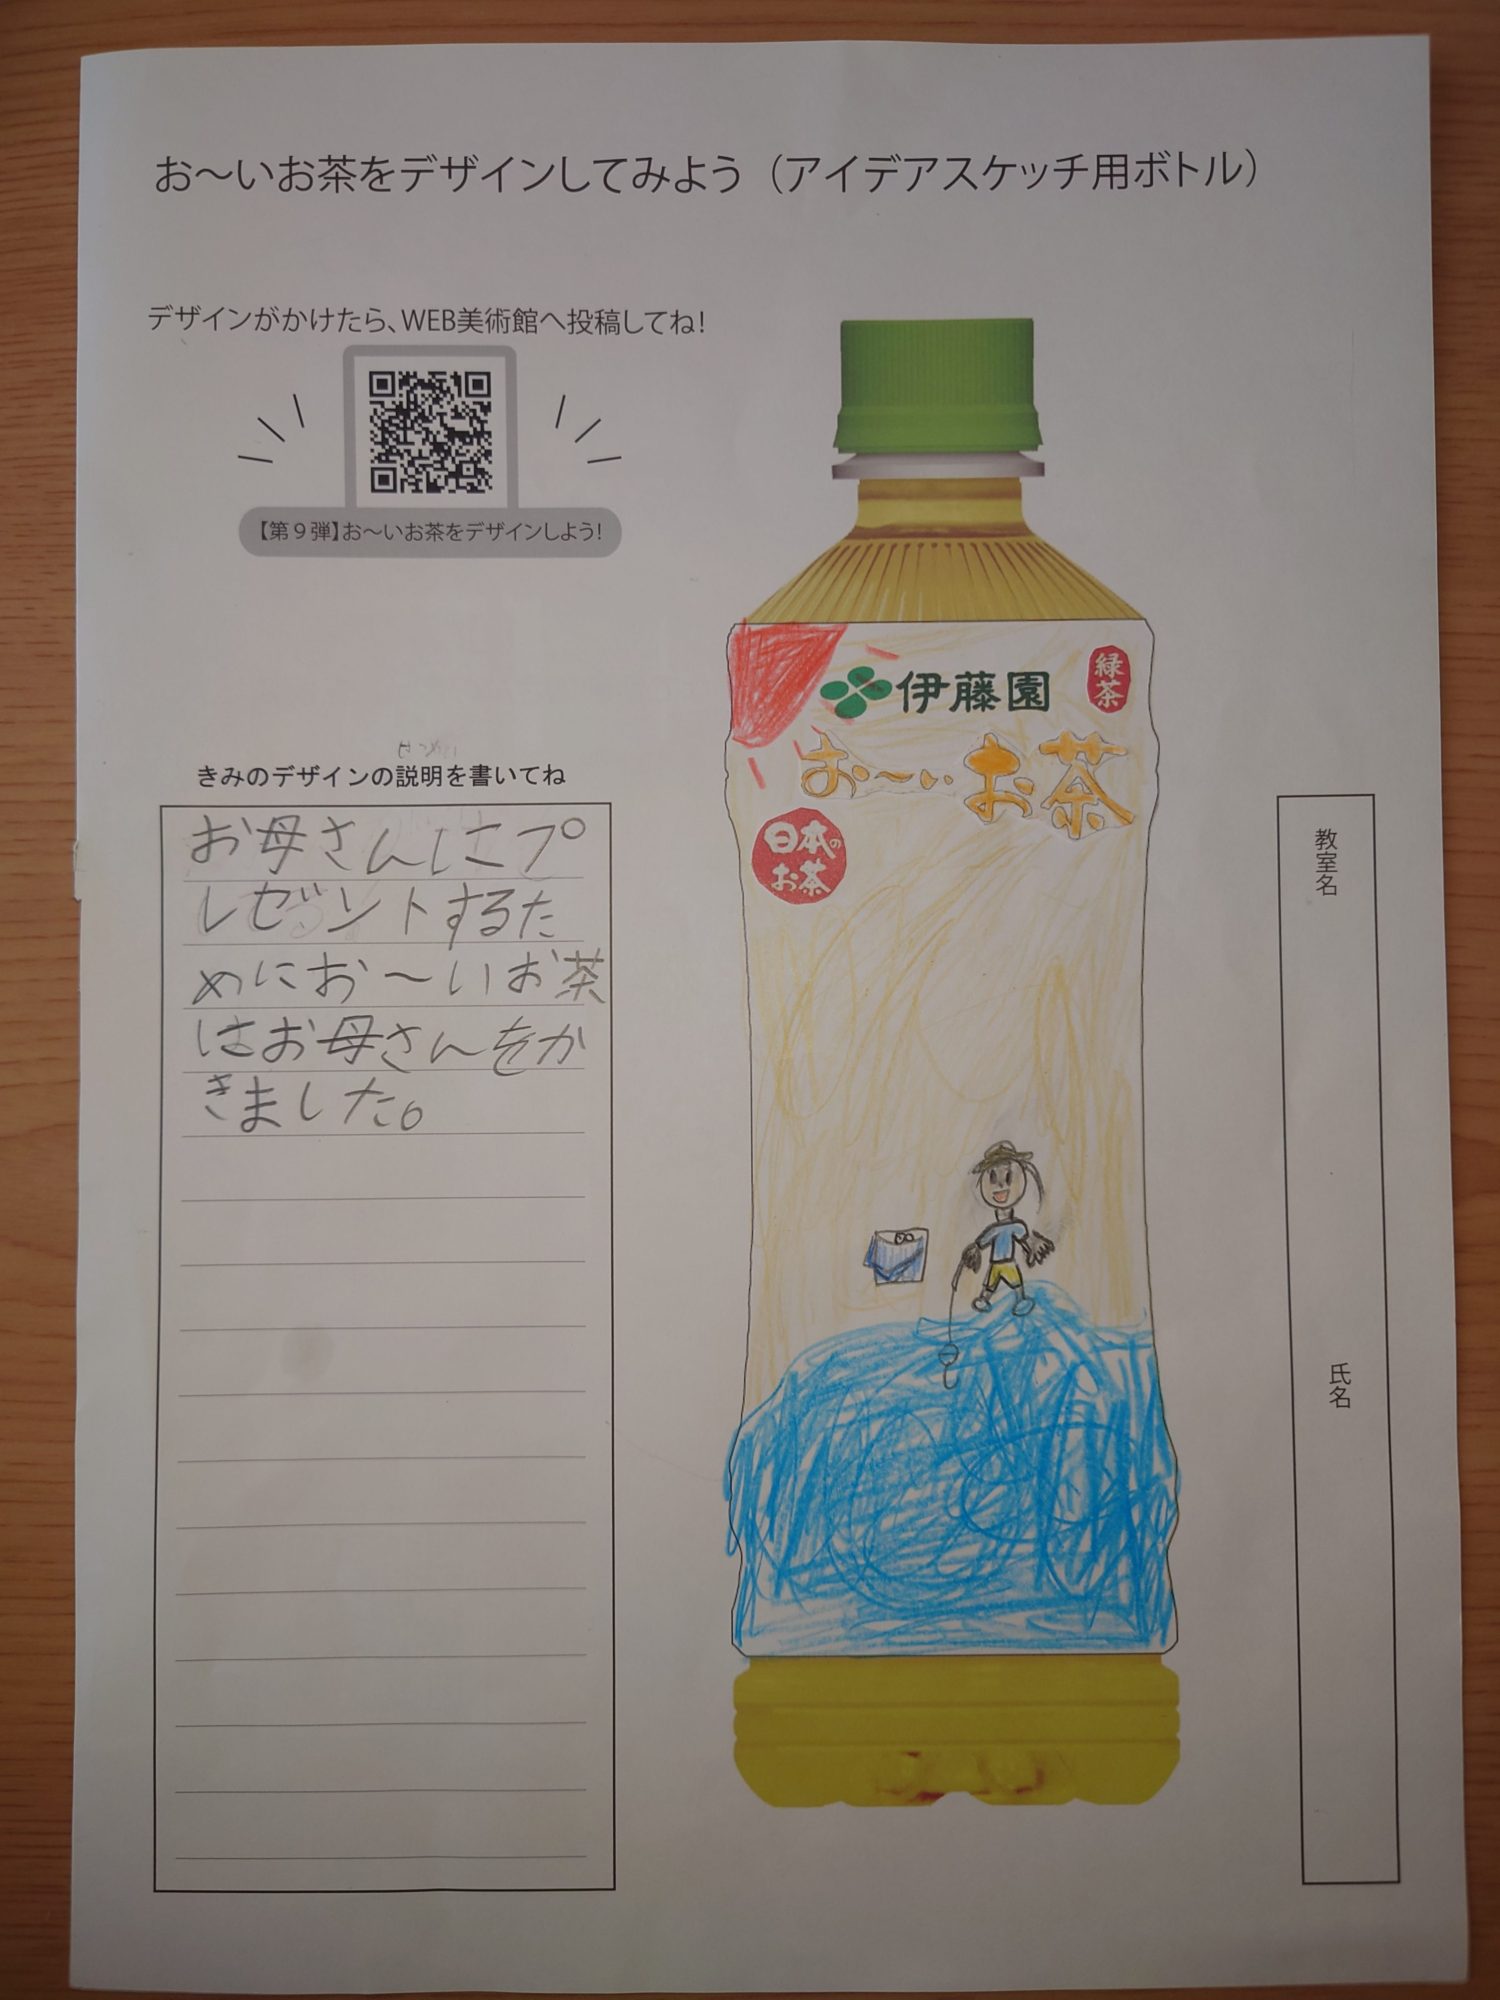 お〜いお茶をデザインしてみよう（アイデアスケッチ用ボトル）
デザインがかけたら、WEB美術館へ投稿してね！
【第９弾】お〜いお茶をデザインしよう！
伊藤園
緑茶
お〜いお茶
日本の
お茶
きみのデザインの説明を書いてね
お母さんにプ
レゼントするた
めにお〜いお茶
はお母さんをか
きました。
教室名
氏名